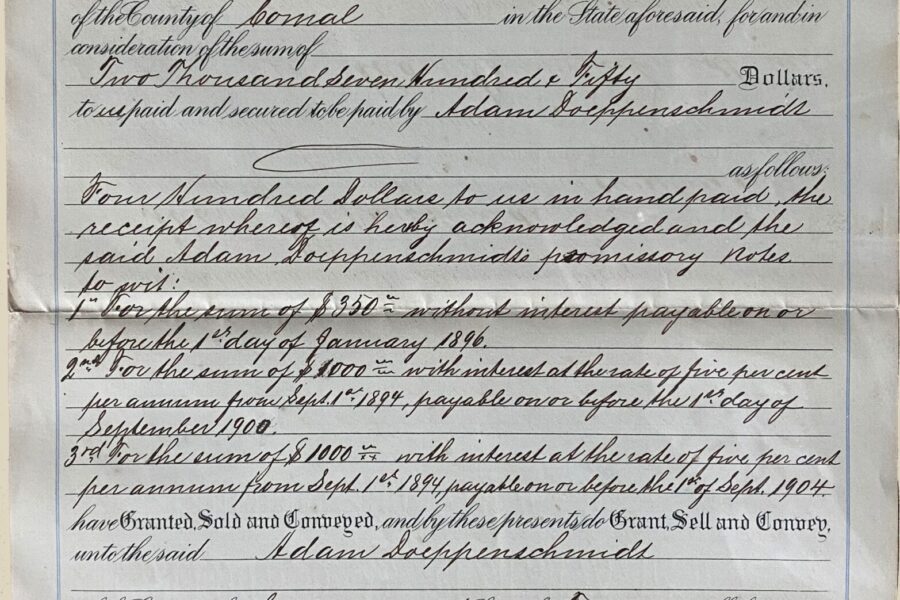 of the County of Comal in the State aforesaid, for and in
consideration of the sum of
Two Thousand Seven Hundred & Fifty Dollars,
to us paid and secured to be paid by Adam Doeppenschmidt
as follows:
Four Hundred Dollars to us in hand paid, the
receipt whereof is hereby acknowledged and the
said Adam Doeppenschmidts promissory notes
to wit:
1st For the sum of $350 without interest payable on or
before the 1st day of January 1896.
2nd For the sum of $1000 with interest at the rate of five per cent
per annum from Sept. 1st 1894, payable on or before the 1st day of
September 1900.
3rd For the sum of $1000 xx with interest at the rate of five per cent
per annum from Sept. 1st 1894, payable on or before the 1st of Sept. 1904.
have Granted, Sold and Conveyed, and by these presents do Grant, Sell and Convey,
unto the said Adam Doeppenschmidt